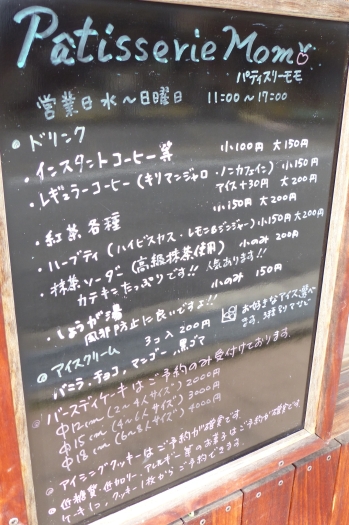 Pâtisserie Momo
パティスリーモモ
営業日 水〜日曜日 11:00〜17:00
◎ ドリンク
・インスタントコーヒー等 小100円 大150円
・レギュラーコーヒー(キリマンジャロ・ノンカフェイン) 小150円
アイス+30円 大200円
・紅茶各種 小150円 大200円
・ハーブティ(ハイビスカス・レモン&ジンジャー) 小150円 大200円
・抹茶ソーダー(高級抹茶使用) 小のみ 200円
カテキンたっぷりです!! 人気あります!!
・しょうが湯 小のみ 150円
風邪防止に良いですよ!!
◎アイスクリーム 3コ入 200円
バニラ・チョコ、マンゴー、黒ゴマ
お好きなアイス、選べ
ます。
◎バースデイケーキはご予約のみ受付けております。
Φ12cm (2〜4人サイズ) 2000円
Φ15cm (4〜6人サイズ) 3000円
Φ18cm (6〜8人サイズ) 4000円
◎アイシングクッキーはご予約が確実です。
◎低糖質、低カロリー、アレルギー等のお菓子はご予約が確実です。
ケーキ1コ、クッキー1枚からご予約できます。